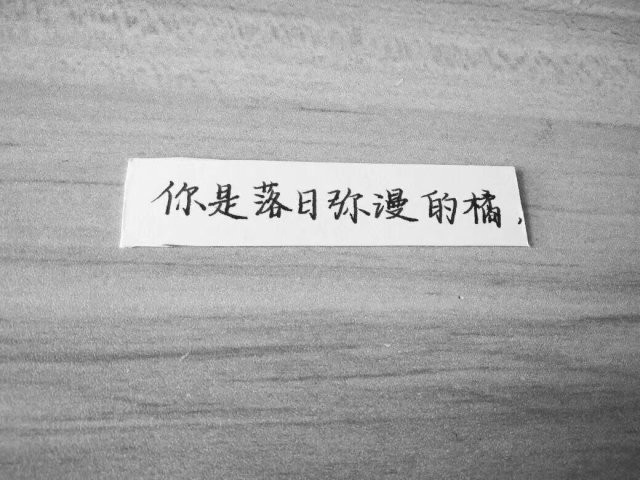 你是落日弥漫的橘,